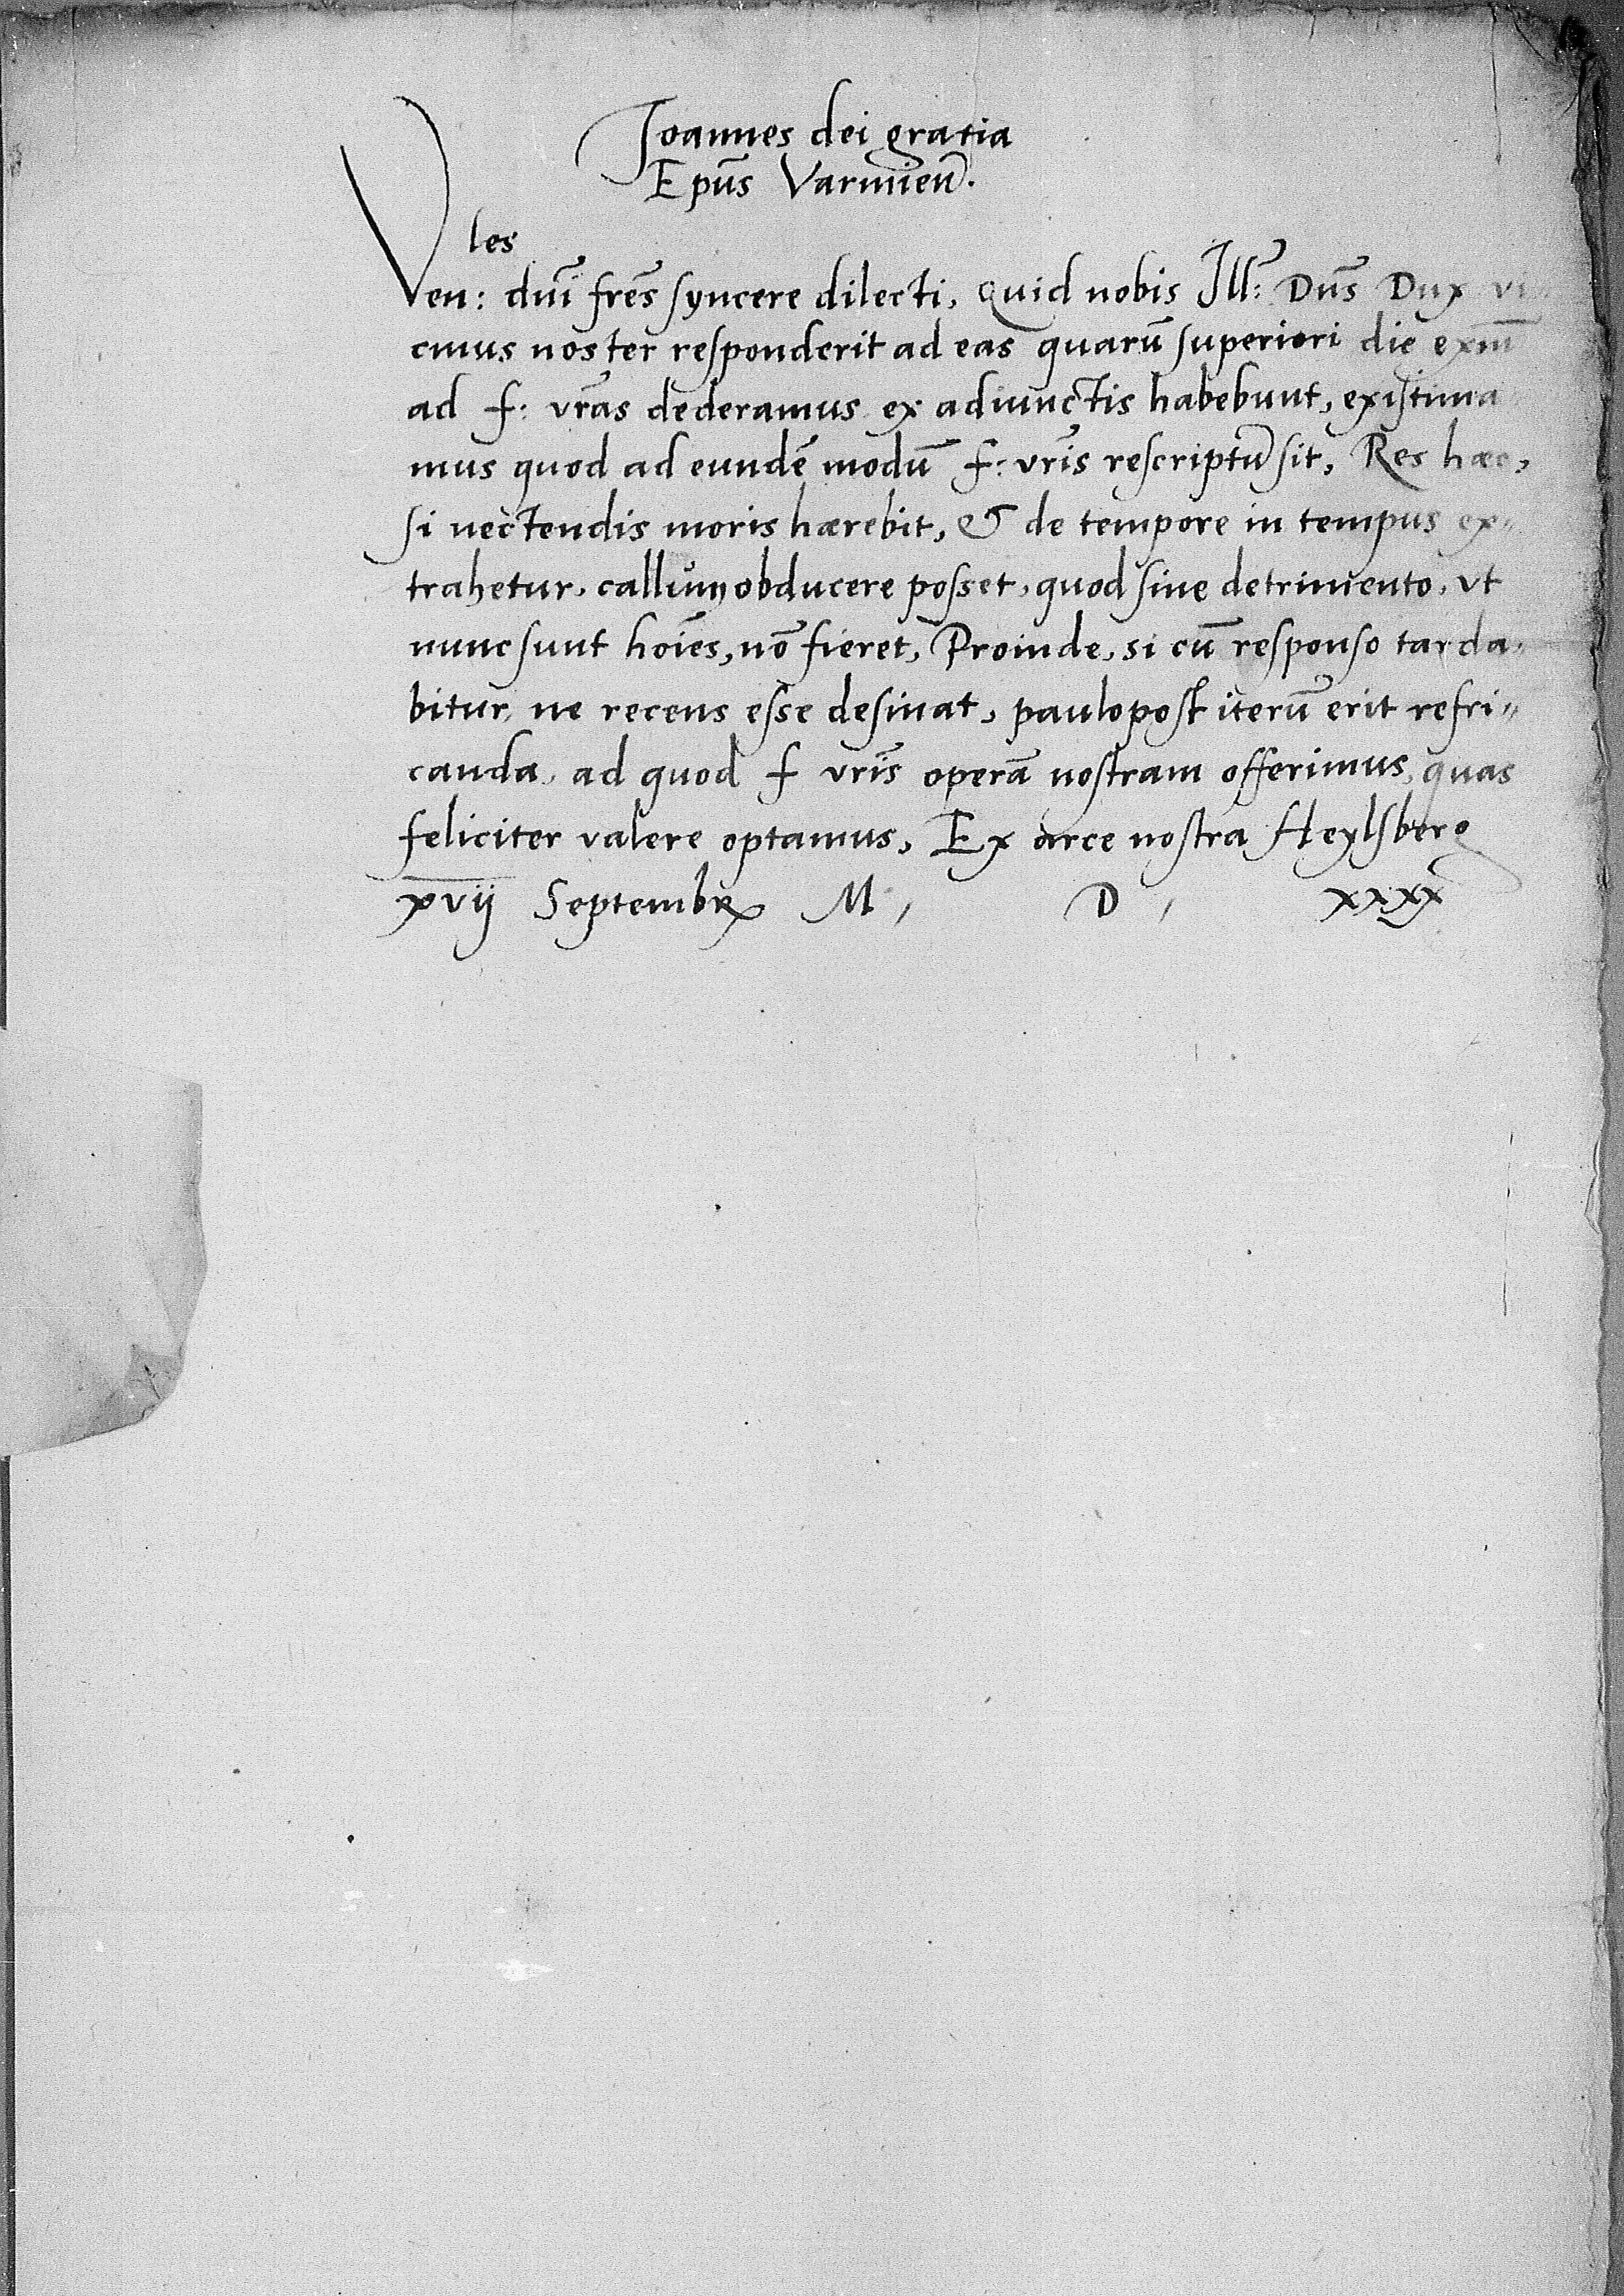 Joannes dei gratia
Epũs Varmieñ.
les
Ven: dñi frẽs syncere dilecti, Quid nobis Ill: Dñs Dux vi
cinus noster responderit ad eas quarũ superiori die exm̃
ad f: vrãs dederamus ex adiunctis habebunt, existima
mus quod ad eundẽ modũ f: vrĩs rescriptũ sit, Res hæc,
si nectendis moris hærebit, & de tempore in tempus ex„
trahetur, callum obducere posset, quod sine detrimento, vt
nunc sunt hoĩes, nõ fieret, Proinde, si cũ responso tarda„
bitur, ne recens esse desinat, paulo post iterũ erit refri„
canda, ad quod f vrĩs operã nostram offerimus, quas
feliciter valere optamus, Ex arce nostra Heylsberg
xvij Septembr M, D, xxxx